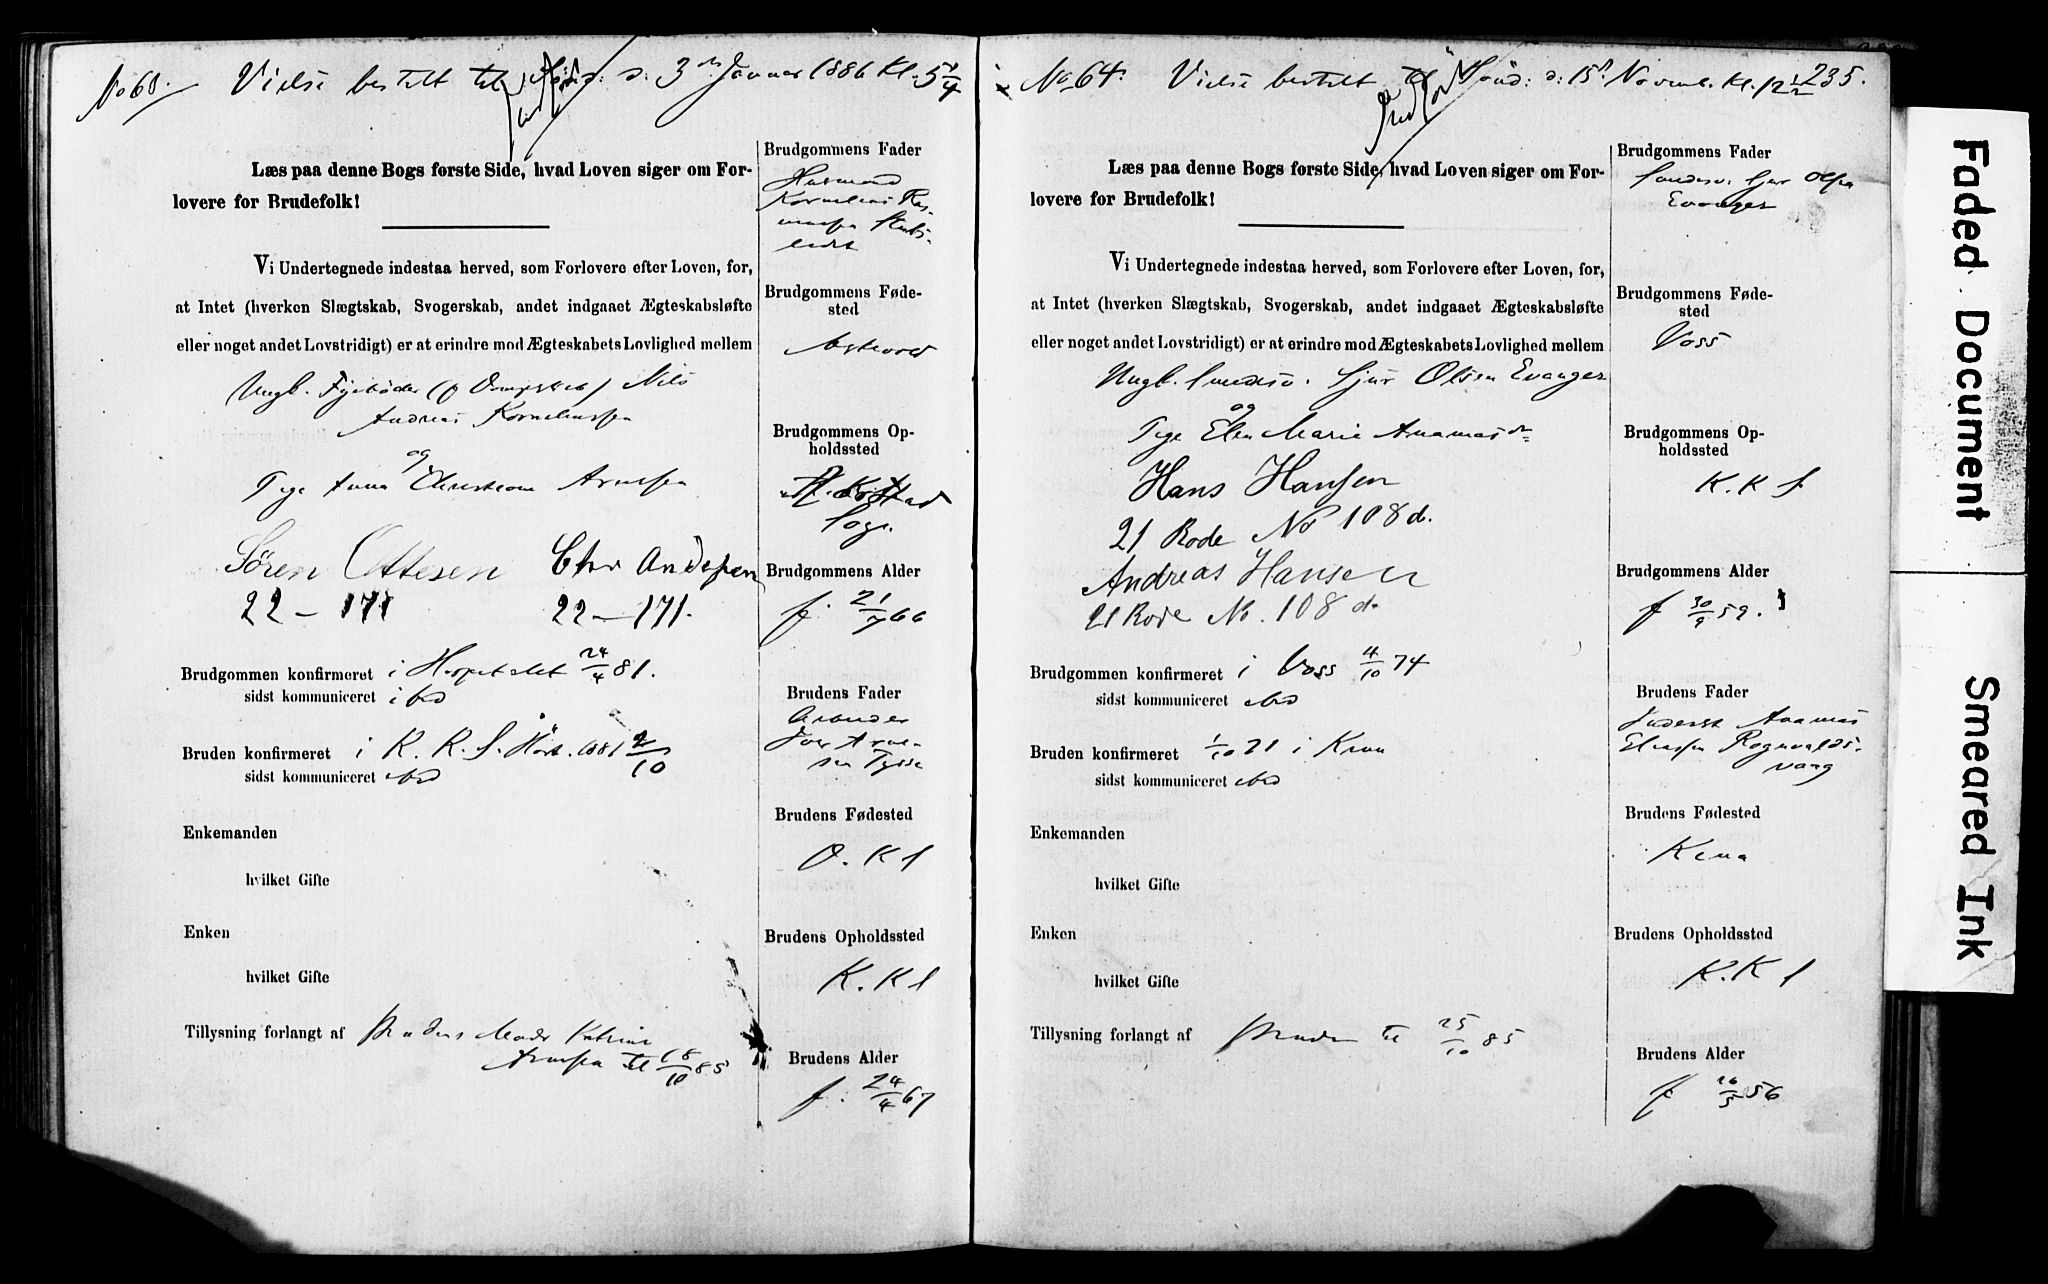 No 60. Vielse bestelt til Sønd. d. 3 Januar 1886 Kl. 5 1/4
Læs paa denne Bogs første Side, hvad Loven siger om For-
lovere for Brudefolk!
Vi Undertegnede indestaa herved, som Forlovere efter Loven, for,
at Intet (hverken Slægtskab, Svogerskab, andet indgaaet Ægteskabsløfte
eller noget andet Lovstridigt) er at erindre mod Ægteskabets Lovlighed mellem
Ungk. Fyrbøder Nils
Andreas Korneliussen
og
Pige Anna Christiane Arnesen
Søren Ottesen Chr Andersen
22 – 171 22 – 171.
Brudgommen konfirmeret i Hospitalet 24/4 81.
sidst kommuniceret ibid
Bruden konfirmeret i K. K. S. Høst. 1881 2/10
sidst kommuniceret ibid
Enkemanden
hvilket Gifte
Enken
hvilket Gifte
Tillysning forlangt af Brudens Moder Katrine
Arnesen til 18/10 85
Brudgommens Fader
Husmand
Kornelius Ras-
mussen
Brudgommens Føde-
sted
Askevold
Brudgommens Op-
holdssted
Sogn.
Brudgommens Alder
f. 21/7 66
Brudens Fader
Arbeider
Arne-
sen Tysse
Brudens Fødested
D. K S
Brudens Opholdssted
K. K S
Brudens Alder
f. 24/4 67
No 64. Vielse bestelt til Sønd. d. 15 Novemb. Kl. 12 1/2 235.
Læs paa denne Bogs første Side, hvad Loven siger om For-
lovere for Brudefolk!
Vi Undertegnede indestaa herved, som Forlovere efter Loven, for,
at Intet (hverken Slægtskab, Svogerskab, andet indgaaet Ægteskabsløfte
eller noget andet Lovstridigt) er at erindre mod Ægteskabets Lovlighed mellem
Ungk. Snedksv. Sjur Olsen Evanger
og
Pige Elen Marie Ananiasdr
Hans Hansen
21 Rode No 108 d.
Andreas Hansen
21 Rode No. 108 d.
Brudgommen konfirmeret i Voss 4/10 74
sidst kommuniceret ibid
Bruden konfirmeret 1/10 71 i Kinn
sidst kommuniceret ibid
Enkemanden
hvilket Gifte
Enken
hvilket Gifte
Tillysning forlangt af Bruden til 25/10 85
Brudgommens Fader
Sjur Olsen
Evanger
Brudgommens Føde-
sted
Voss
Brudgommens Op-
holdssted
K. K S
Brudgommens Alder
f 30/9 59.
Brudens Fader
Inderst Ananias
Eliassen Rognvalds-
vaag
Brudens Fødested
Kinn
Brudens Opholdssted
K. K S
Brudens Alder
f 26/5 56
Faded Document
Smeared Ink